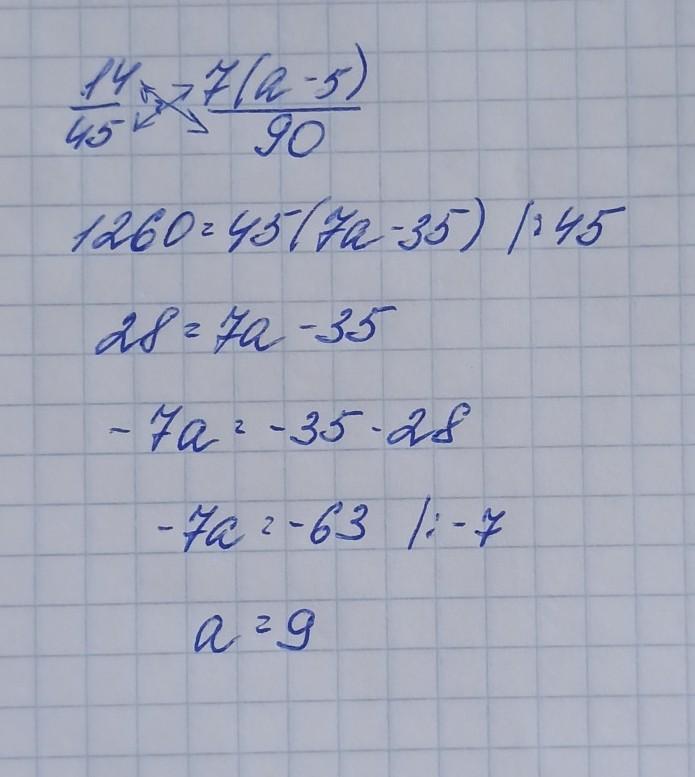 14/45 = 7(a-5)/90
1260 = 45(7a-35) |:45
28 = 7a - 35
-7a = -35 - 28
-7a = -63 |: -7
a = 9